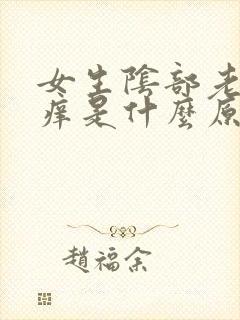 女生陰部老
痒是什麼原
趙福余